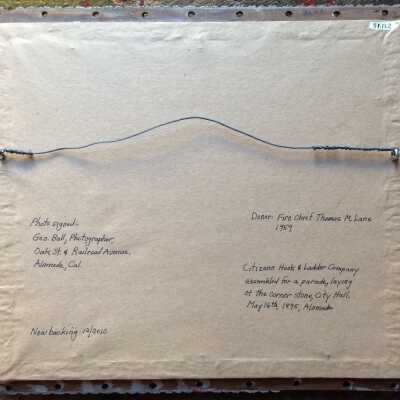 Photo signed-
Geo. Ball, Photographer,
Oak St. & Railroad Avenue.
Alameda, Cal.
New backing 12/2010
Donor: Fire Chief Thomas M. Lane
1959
Citizens Hook & Ladder Company
assembled for a parade, laying
of the corner stone, City Hall,
May 16th, 1895, Alameda